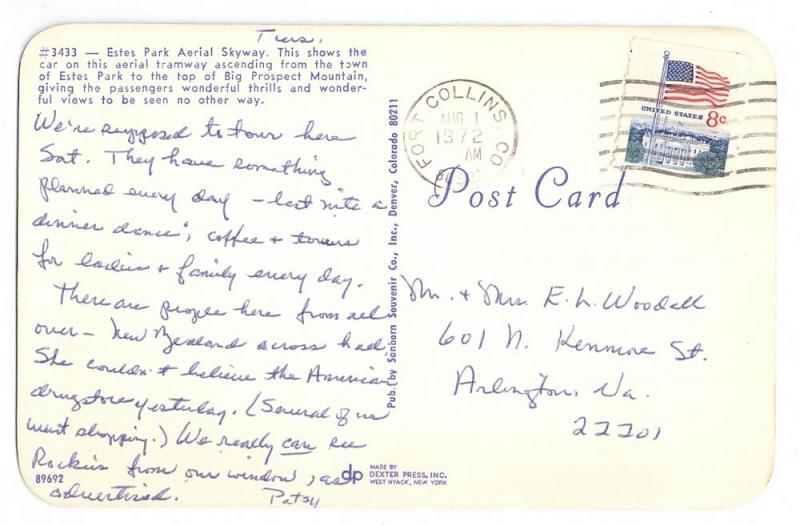 Tues.
#3433 — Estes Park Aerial Skyway. This shows the
car on this aerial tramway ascending from the town
of Estes Park to the top of Big Prospect Mountain,
giving the passengers wonderful thrills and wonder-
ful views to be seen no other way.
We're supposed to tour here
Sat. They have something
planned every day – last nite a
dinner dance; coffee + tours
for ladies + family every day.
There are people here from all
over – New Zealand across hall
She couldn't believe the American
drugstore yesterday. (Several of us
went shopping.) We really can see
Rockies from our window, as
advertised.
Patsy
89692
dp
MADE BY
DEXTER PRESS, INC.
WEST NYACK, NEW YORK
Pub. by Sanborn Souvenir Co., Inc., Denver, Colorado 80211
FORT COLLINS, CO
AUG 1
1972
AM
UNITED STATES 8c
Post Card
Mr. + Mrs. E. L. Woodall
601 N. Kenmore St.
Arlington, Va.
22201